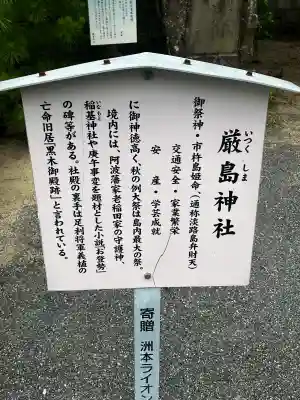 厳島神社
いつくしま
御祭神・市杵島姫命、（通称淡路島弁財天）
交通安全・家業繁栄
安産・学芸成就
に御神徳高く、秋の例大祭は島内最大の祭。
境内には、阿波藩家老稲田家の守護神、
稲基神社や庚午事変を題材とした小説「お登勢」
いなもと
の碑等がある。社殿の裏手は足利将軍義植の
亡命旧居「黒木御殿跡」と言われている。
寄贈 洲本ライオン